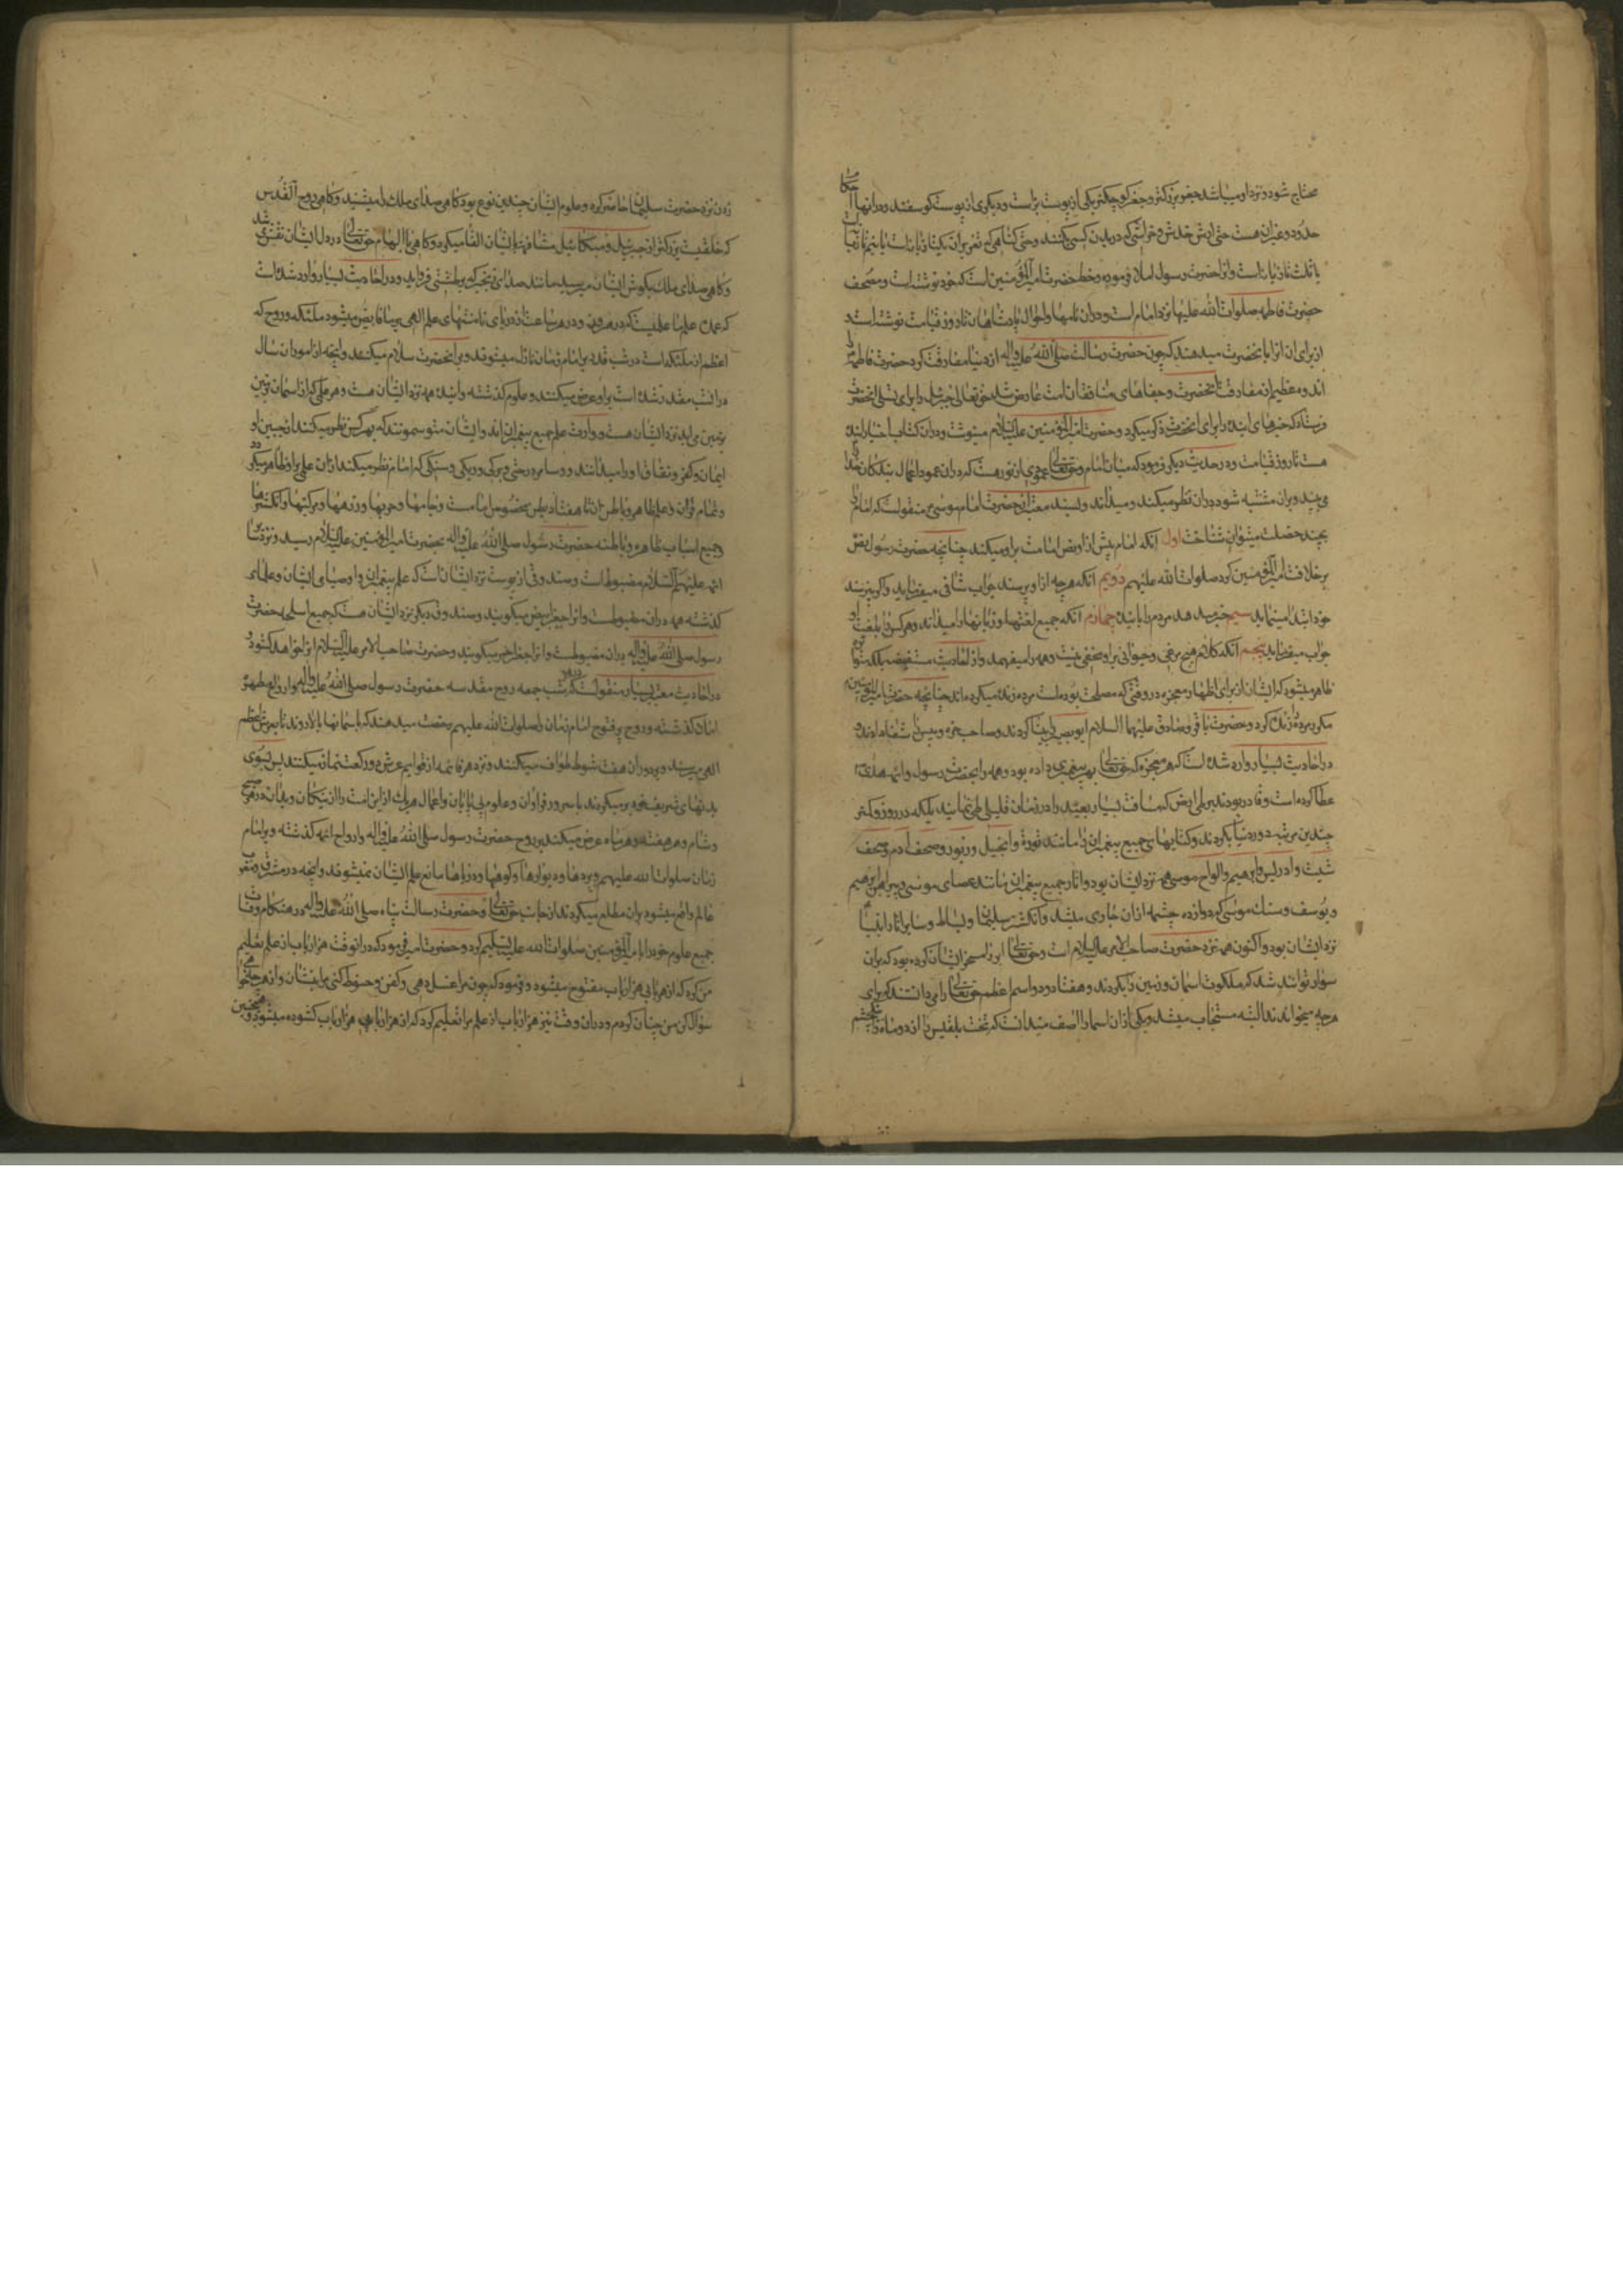 محتاج شود و نزد او میباشد جفر بزرکتر و جفر کوچکتر یکی از پوست بز است و دیکری از پوست کوسفند و در انها احکا
حدود و غیر ان هست حتی ارش خدش و خراشی که در بدن کسی بکنند و حتی کناهی که تعزیر ان یکتازیانه است یا نیم تازیانه
یا ثلث تازیانه است و انرا حضرت رسول املا فرموده و بخط حضرت امیرالمؤمنین است که خود نوشته است و مصحف
حضرت فاطمه صلوات الله علیها نزد امام است و در ان نامها و احوال پادشاهان تا روز قیامت نوشته است
از برای ان انرا بانحضرت میدهند که چون حضرت رسالت صلی الله علیه واله از دنیا مفارقت کرد حضرت فاطمه را
اندوه عظیم از مفارقت انحضرت و جفاهای منافقان امت عارض شد حق تعالی جبرئیل را برای تسلی انحضرت
فرستاد که خبرهای اینده را برای انحضرت ذکر میکرد و حضرت امیرالمؤمنین علیه السلام مینوشت و در ان کتاب اخبار اینده
هست تا روز قیامت و در حدیث دیکر فرمود که میان امام و حقتعالی عمودی از نور هست که در ان عمود اعمال بندکان خدا را
می بیند و بران مشتبه شود در ان نظر میکند و میداند و بسند معتبر از حضرت امام موسی منقولست که امام را
بچند خصلت میتوان شناخت اول انکه امام پیش از او نص امامت بر او میکند چنانچه حضرت رسول نص
بر خلافت امیرالمؤمنین کرد صلوات الله علیهم دویم انکه هرچه از او پرسند جواب شافی میفرماید و اکر نپرسند
خود ابتدا مینماید سیم خبر میدهد مردم را باینده چهارم انکه جمیع لغتها و زبانها را میداند و هر کس را بلغت او
جواب میفرماید پنجم انکه کلام هیچ مرغی و حیوانی بر او مخفی نیست و همه را میفهمد و از احادیث مستفیضه بلکه متواتره
ظاهر میشود که ایشان از برای اظهار معجزه در وقتی که مصلحت بوده است مرده زنده میکرده اند چنانچه حضرت امیرالمؤمنین
مکرر مرده را زنده کرد و حضرت باقر و صادق علیهما السلام ابوبصیر را بینا کردند و صاحب خوره و پیس را شفا دادند و
در احادیث بسیار وارد شده است که هر معجزه که حقتعالی بهر پیغمبری داده بود و همه را بحضرت رسول و ائمه هدی
عطا کرده است و قادر بودند بر طی ارض که مسافت بسیار بعید را در زمان قلیلی طی نمایند بلکه در روز و کمتر
چندین مرتبه دور دنیا بکردند و کتابهای جمیع پیغمبران را مانند توریة و انجیل و زبور و صحف ادم و صحف
شیث و ادریس و ابرهیم و الواح موسی همه نزد ایشان بود و اثار جمیع پیغمبران مانند عصای موسی و پیراهن ابرهیم
و یوسف و سنک موسی که دوازده چشمه از ان جاری میشد و انکشتر سلیمان و بساط و سایر اثار انبیا
نزد ایشان بود و اکنون همه نزد حضرت صاحب الامر علیه السلام است و حقتعالی ابر را مسخر ایشان کرده بود که بران
سوار توانند شد که ملکوت اسمان و زمین را بکردند و هفتاد و دو اسم اعظم حقتعالی را میدانستند که برای
هرچه میخواندند البته مستجاب میشد و یکی از ان اسما را اصف میدانست که تخت بلقیس را از دو ماه راه بیکچشم
زدن نزد حضرت سلیمان حاضر کرد و علوم ایشان چندین نوع بود کاهی صدای ملک را میشنید و کاهی روح القدس
که خلقیست بزرکتر از جبرئیل و میکائیل مشافهة بایشان القا میکرد و کاهی با الهام حقتعالی در دل ایشان نقش میشد
و کاهی صدای ملک بکوش ایشان میرسید مانند صدای زنجیری که بر طشتی فرو اید و در احادیث بسیار وارد شده است
که عمده علم ما علمیست که در هر روز و در هر ساعت از دریای نامنتهای علم الهی بر ما فایض میشود ملئکه و روح که
اعظم از ملئکه است در شب قدر بر امام زمان نازل میشوند و بر انحضرت سلام میکنند و انچه از امور ان سال
در انشب مقدر شده است بر او عرض میکنند و علوم کذشته و اینده همه نزد ایشان هست و هر علمی که از اسمان بزمین
بزمین می اید نزد ایشان هست و وارث علم جمیع پیغمبران اند و ایشان متوسمونند که بهر کس نظر میکنند از جبین او
ایمان و کفر و نفاق او را میدانند
و تمام قران و علم ظاهر و باطن ان تا هفتاد بطن مخصوص امامست و جامها و حربها و زرهها و مرکبها و انکشترها
و جمیع اسباب ظاهره و باطنه حضرت رسول صلی الله علیه واله بحضرت امیرالمؤمنین علیه السلام رسید و نزد سایر
ائمه علیهم السلام مضبوط است و صندوقی از پوست نزد ایشان است که علم پیغمبران و اوصیای ایشان و علمای
کذشته همه در ان مضبوطست و انرا جفر ابیض میکویند و صندوق دیکر نزد ایشان هست که جمیع اسلحه حضرت
رسول صلی الله علیه واله در ان مضبوطست و انرا جفر احمر میکویند و حضرت صاحب الامر علیه السلام انرا خواهد کشود و
در احادیث معتبر بسیار منقولست که در هر شب جمعه روح مقدسه حضرت رسول صلی الله علیه واله و ارواح مطهره
امامان کذشته و روح پر فتوح امام زمان را صلوات الله علیهم رخصت میدهند که باسمانها بالا روند تا بعرش اعظم
الهی میرسند و بر دور ان هفت شوط طواف میکنند و نزد هر قائمه از قوایم عرش دو رکعت نماز میکنند پس بسوی
بدنهای شریف خود بر میکردند با سرور فراوان و علوم بی پایان و اعمال هر یک از این امت را از نیکان و بدان در هر صبح
و شام و هر هفته و هر ماه عرض میکنند بر روح حضرت رسول صلی الله علیه واله و ارواح ائمه کذشته و بر امام
زمان صلوات الله علیهم و پردها و دیوارها و کوهها و دریاها مانع علم ایشان نمیشوند و انچه در مشرق و مغرب
عالم واقع میشود بران مطلع میکردند از جانب حقتعالی و حضرت رسالت پناه صلی الله علیه واله در هنکام وفات
جمیع علوم خود را بامیرالمؤمنین صلوات الله علیه تسلیم کرد و حضرت امیر فرمود که در انوقت هزار باب از علم تعلیم
من کرد که از هر بابی هزار باب مفتوح میشود و فرمود که چون مرا غسل دهی و کفن و حنوط کنی مرا بنشان و از هرچه خواهی
سؤال کن من چنان کردم و در ان وقت نیز هزار باب از علم مرا تعلیم کرد که از هر باب هزار باب کشوده میشود و همچنین